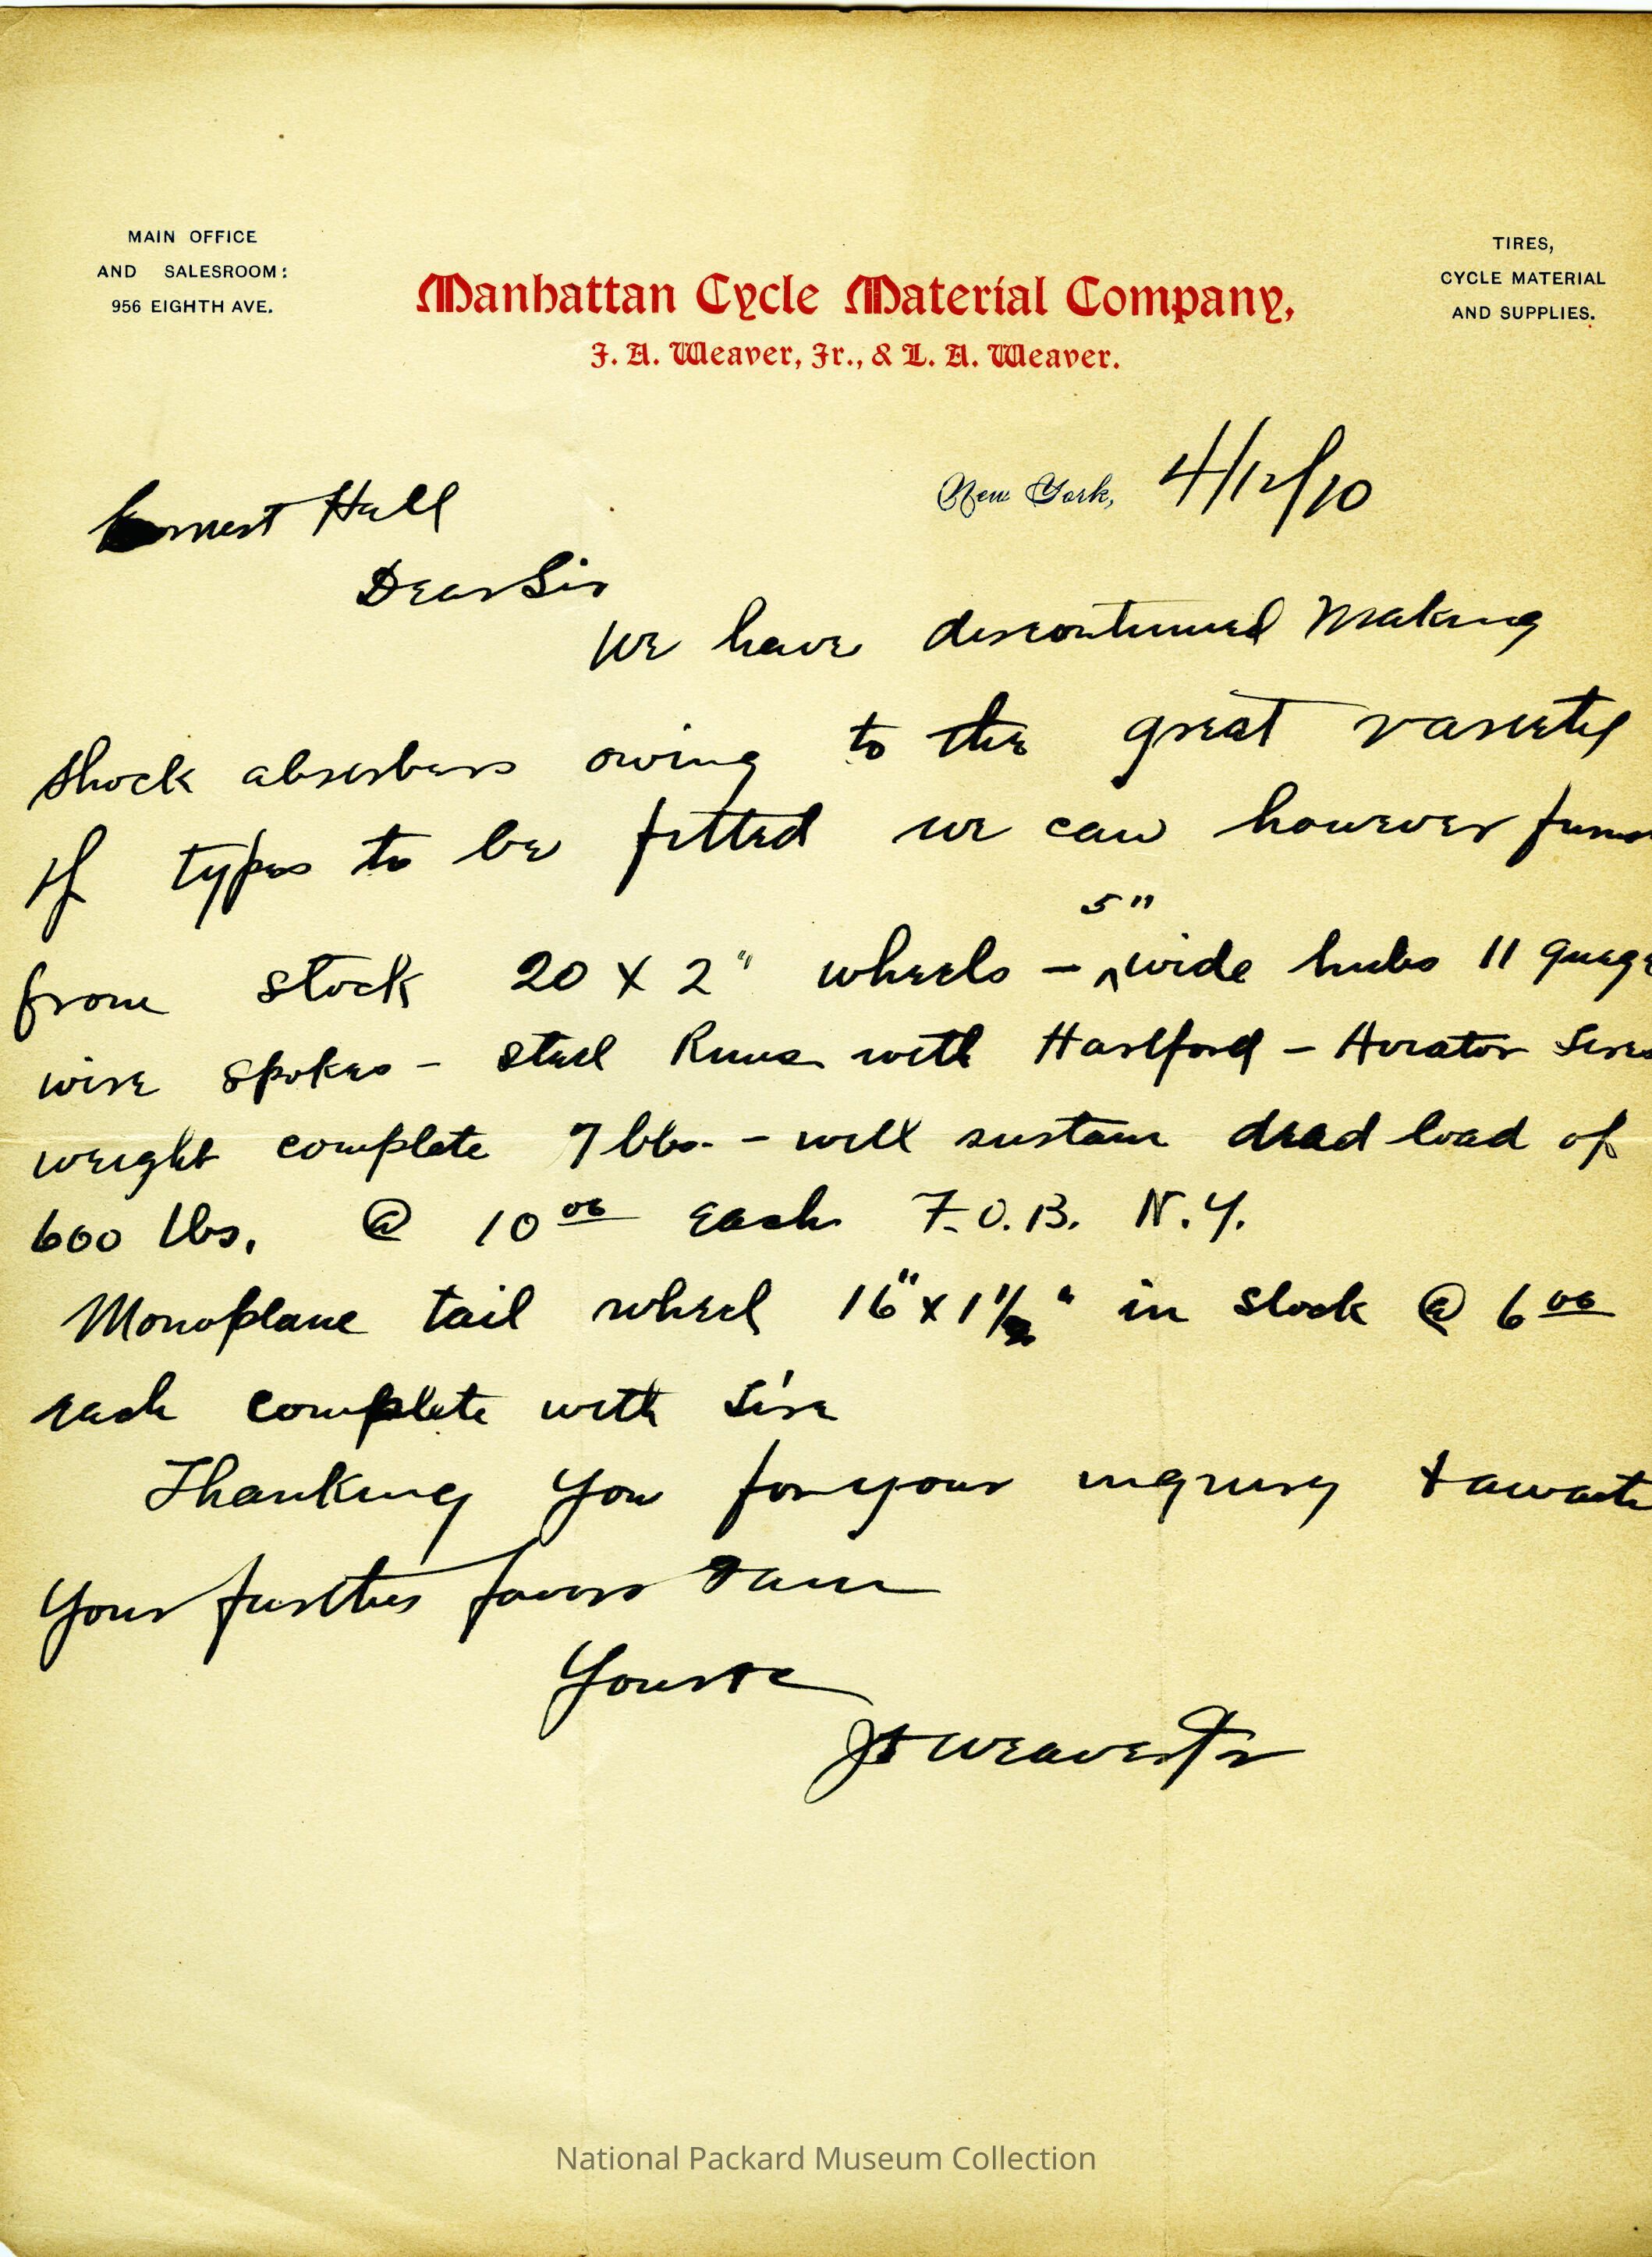 MAIN OFFICE
AND SALESROOM:
956 EIGHTH AVE.
TIRES,
CYCLE MATERIAL
AND SUPPLIES.
Manhattan Cycle Material Company,
J. A. Weaver, Jr., & L. A. Weaver.
New York, 4/12/10
Ernest Hall
Dear Sir
We have discontinued Making
shock absorbers owing to the great variety
of types to be fitted we can however furnis
from stock 20 x 2" wheels - 5" wide hubs 11 guage
wire spokes - steel Rims with Hartford - Aviator tires
weight complete 7 lbs. - will sustain dead load of
600 lbs. @ 10 00 each F.O.B. N.Y.
Monoplane tail wheel 16" x 1 1/2" in stock @ 6 00
each complete with tire
Thanking you for your inquiry + await
your further favors I am
Yours &c
JA Weaver Jr
National Packard Museum Collection